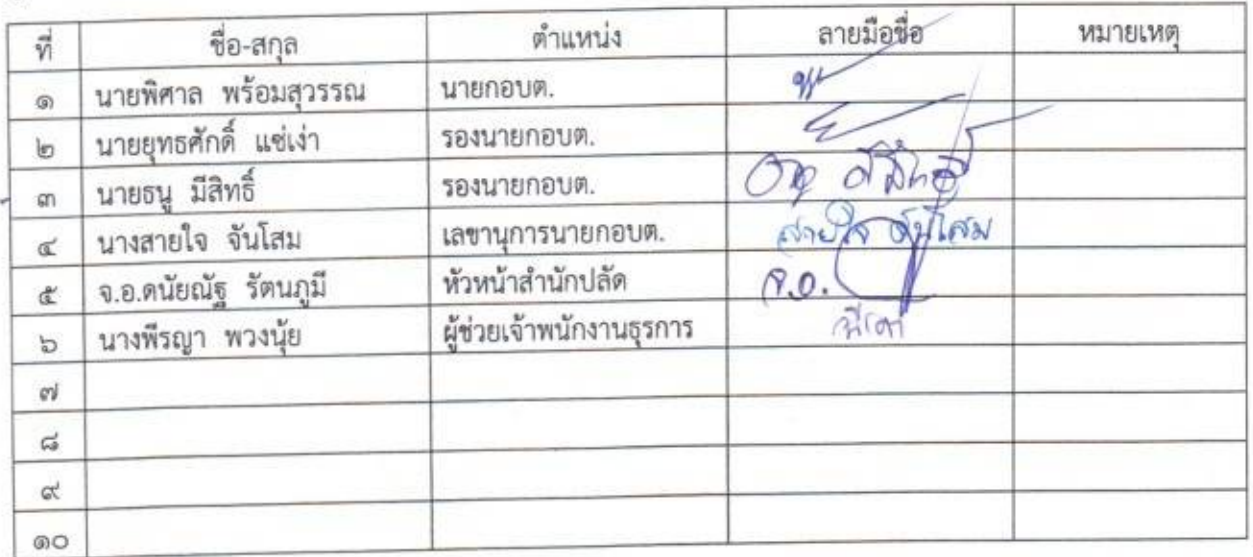 ที่ ชื่อ-สกุล ตำแหน่ง ลายมือชื่อ หมายเหตุ
๑ นายพิศาล พร้อมสุวรรณ นายกอบต.
๒ นายยุทธศักดิ์ แซ่เง่า รองนายกอบต.
๓ นายธนู มีสิทธิ์ รองนายกอบต.
๔ นางสายใจ จันโสม เลขานุการนายกอบต. สายใจ จันโสม
๕ จ.อ.ดนัยณัฐ รัตนภูมี หัวหน้าสำนักปลัด จ.อ.
๖ นางพีรญา พวงนุ้ย ผู้ช่วยเจ้าพนักงานธุรการ
๗
๘
๙
๑๐